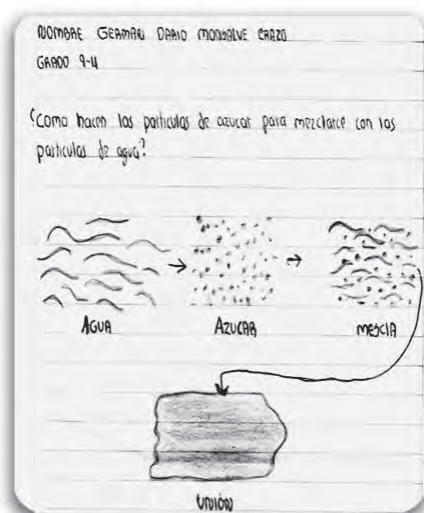 NOMBRE GERMAN DARIO MONSALVE ERAZO
GRADO 9-4
¿Como hacen las particulas de azucar para mezclarce con las
particulas de agua?
AGUA AZUCAR MESCLA
UNIÓN